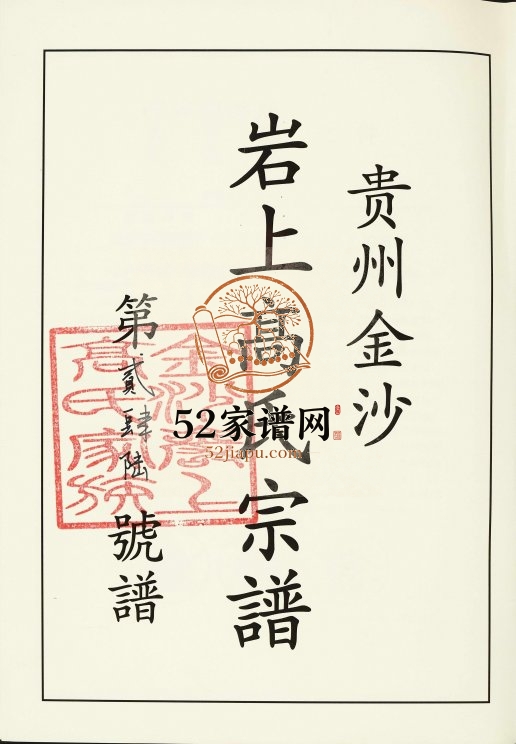 贵州金沙
岩上高氏宗譜
第貳肆陆號譜
52家谱网
52jiapu.com